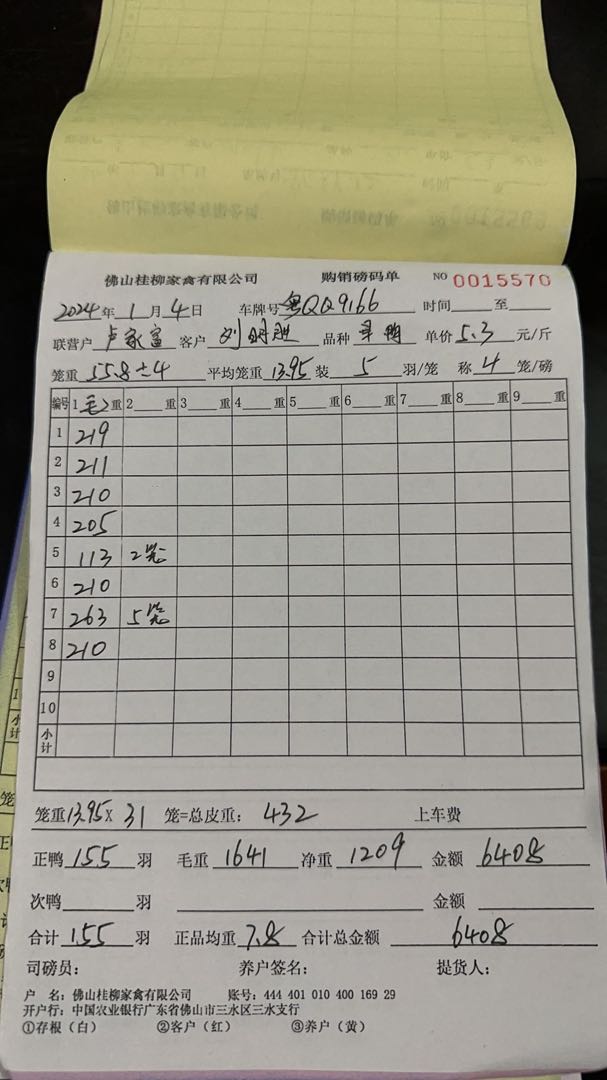 佛山桂柳家禽有限公司 购销磅码单 NO 0015570
2024年1月4日 车牌号 粤QQ9166 时间 至
联营户 卢家富 客户 刘明胜 品种 单价 5.3 元/斤
笼重 55.8÷4 平均笼重 13.95 装 5 羽/笼 称 4 笼/磅
编号 1 毛重 2 重 3 重 4 重 5 重 6 重 7 重 8 重 9 重
1 219
2 211
3 210
4 205
5 113 2笼
6 210
7 263 5笼
8 210
9
10
小计
笼重 13.95 X 31 笼=总皮重: 432 上车费
正鸭 155 羽 毛重 1641 净重 1209 金额 6408
次鸭 羽 金额
合计 155 羽 正品均重 7.8 合计总金额 6408
司磅员: 养户签名: 提货人:
户 名:佛山桂柳家禽有限公司 账号:444 401 010 400 169 29
开户行:中国农业银行广东省佛山市三水区三水支行
①存根(白) ②客户(红) ③养户(黄)